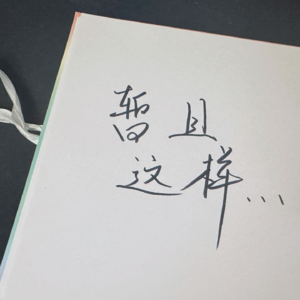 暂且
这样...